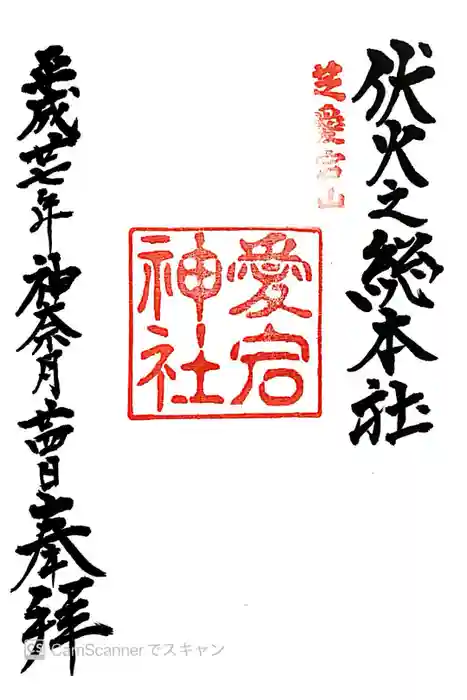 伏火之総本社
芝愛宕山
愛宕
神社
平成廿七年神奈月廿四日奉拝
CamScannerでスキャン